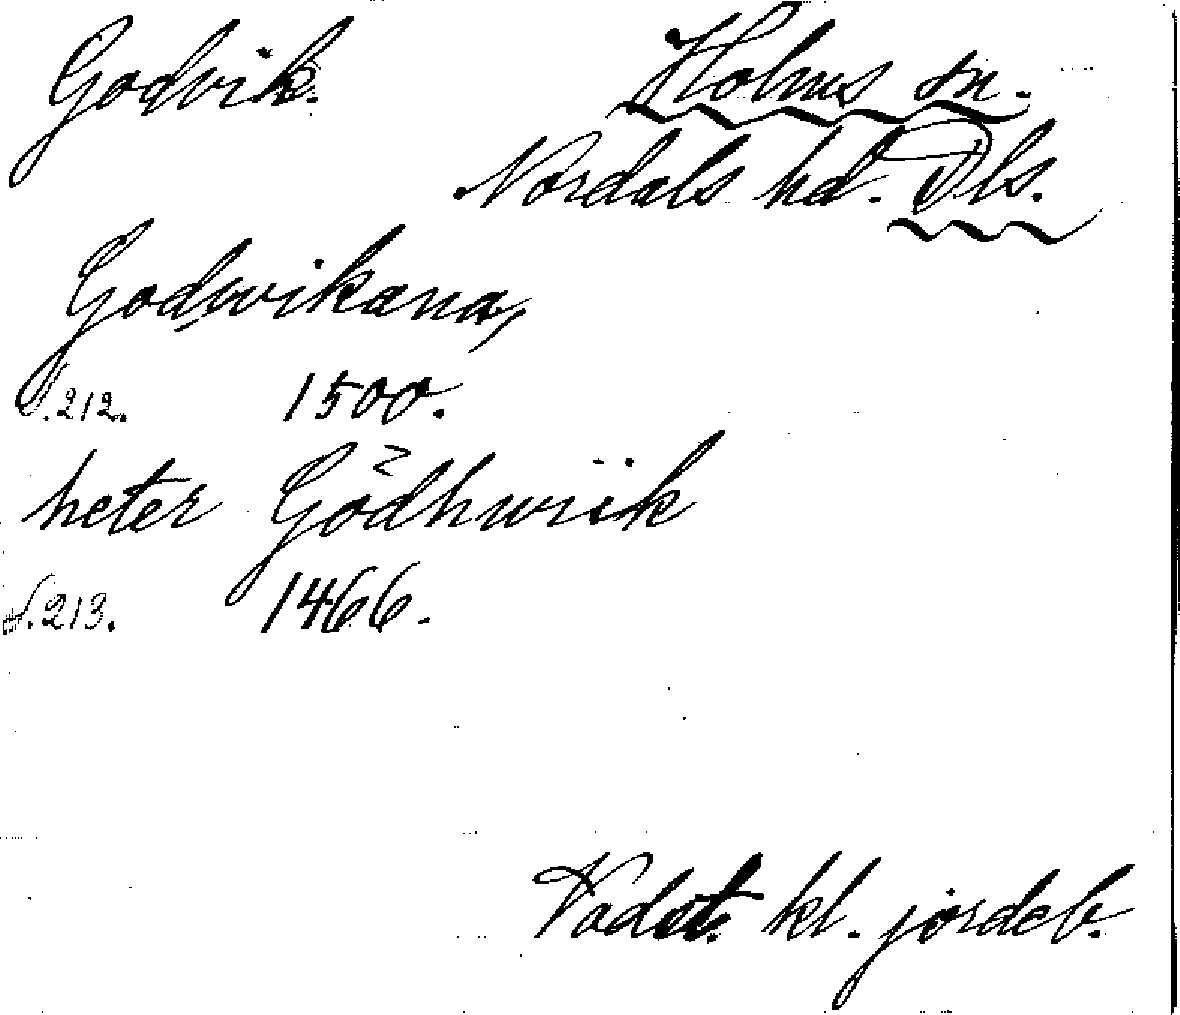 Godvik. Holms sn.
Nordals hd. Dls.
Godwikana,
s. 212. 1500.
heter Gödhwiik
s. 213. 1466.
Vadst. kl. jordeb.